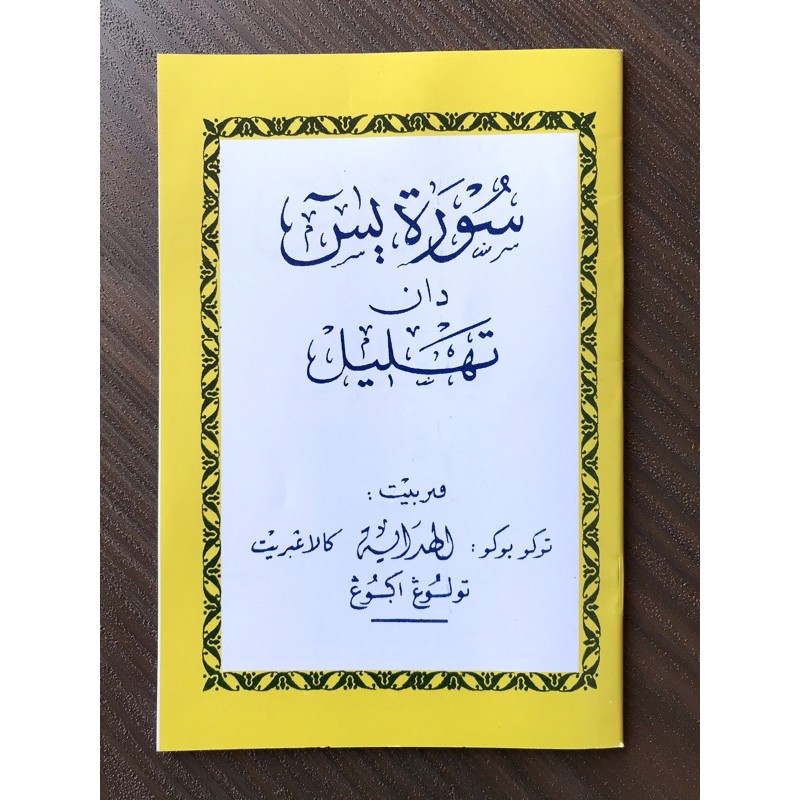 سُوْرَة يٰسٓ
دان
تَهْلِيْل
ڤربيت :
توكو بوكو : الهداية كالاڠبريت
تولوڠ اكوڠ